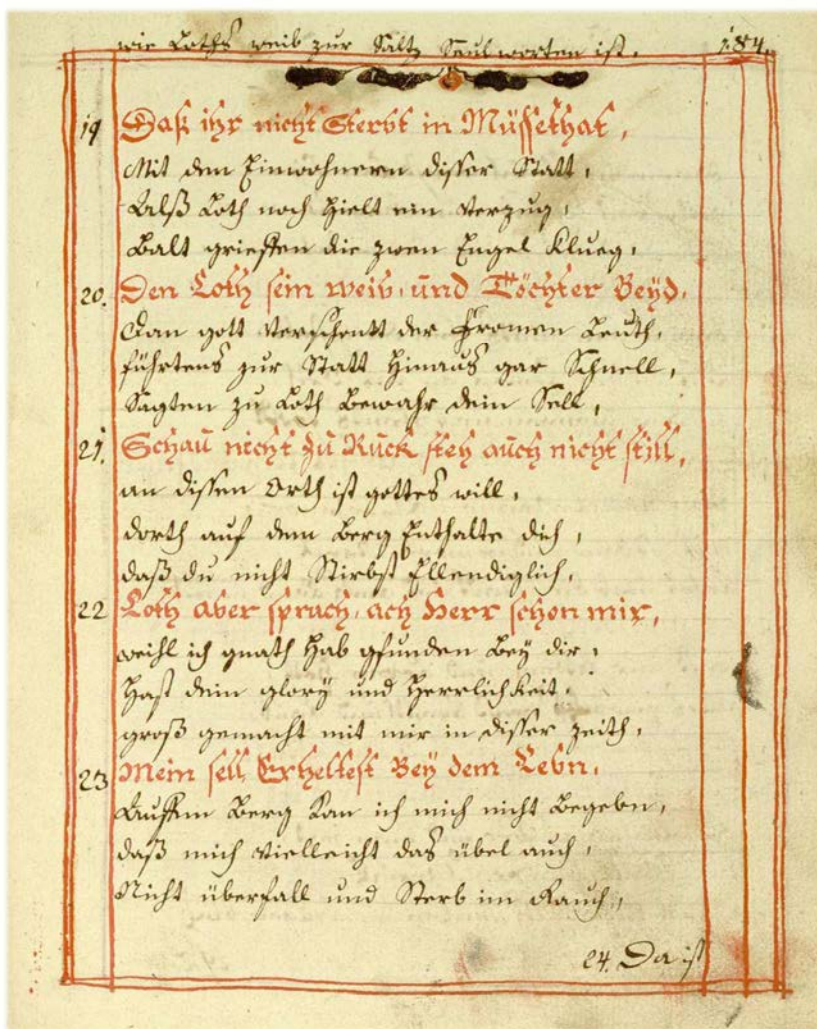 wie Loths weib zur Saltz Saul worten ist. 184.
19 Daß ihr nicht Sterbt in Müssethat,
Mit den Einwohnern disser Statt,
Alß Loth noch hielt ein verzug,
Balt grieffen die zwen Engel Klueg,
20. Den Loth sein weib, und Töchter Beyd,
Dan gott verschontt der Fromen Leuth,
führtens zur Statt hinaus gar Schnell,
Sagten zu Loth Bewahr dein Sell,
21. Schau nicht zu Ruck steh auch nicht still,
an dissen Orth ist gottes will,
dorth auf dem Berg Enthalte dich,
daß du nicht Stirbst Ellendiglich,
22 Loth aber sprach, ach Herr schon mir,
weihl ich gnath hab gfunden Beÿ dir,
hast dein glorÿ und Herrlichkeit,
groß gemacht mit mir in disser zeith,
23 Mein sell Erheltest Beÿ dem Lebn,
Auffm Berg kan ich mich nicht Begebn,
daß mich vielleicht das übel auch,
Nicht überfall und Sterb im Rauch,
24. Da ist